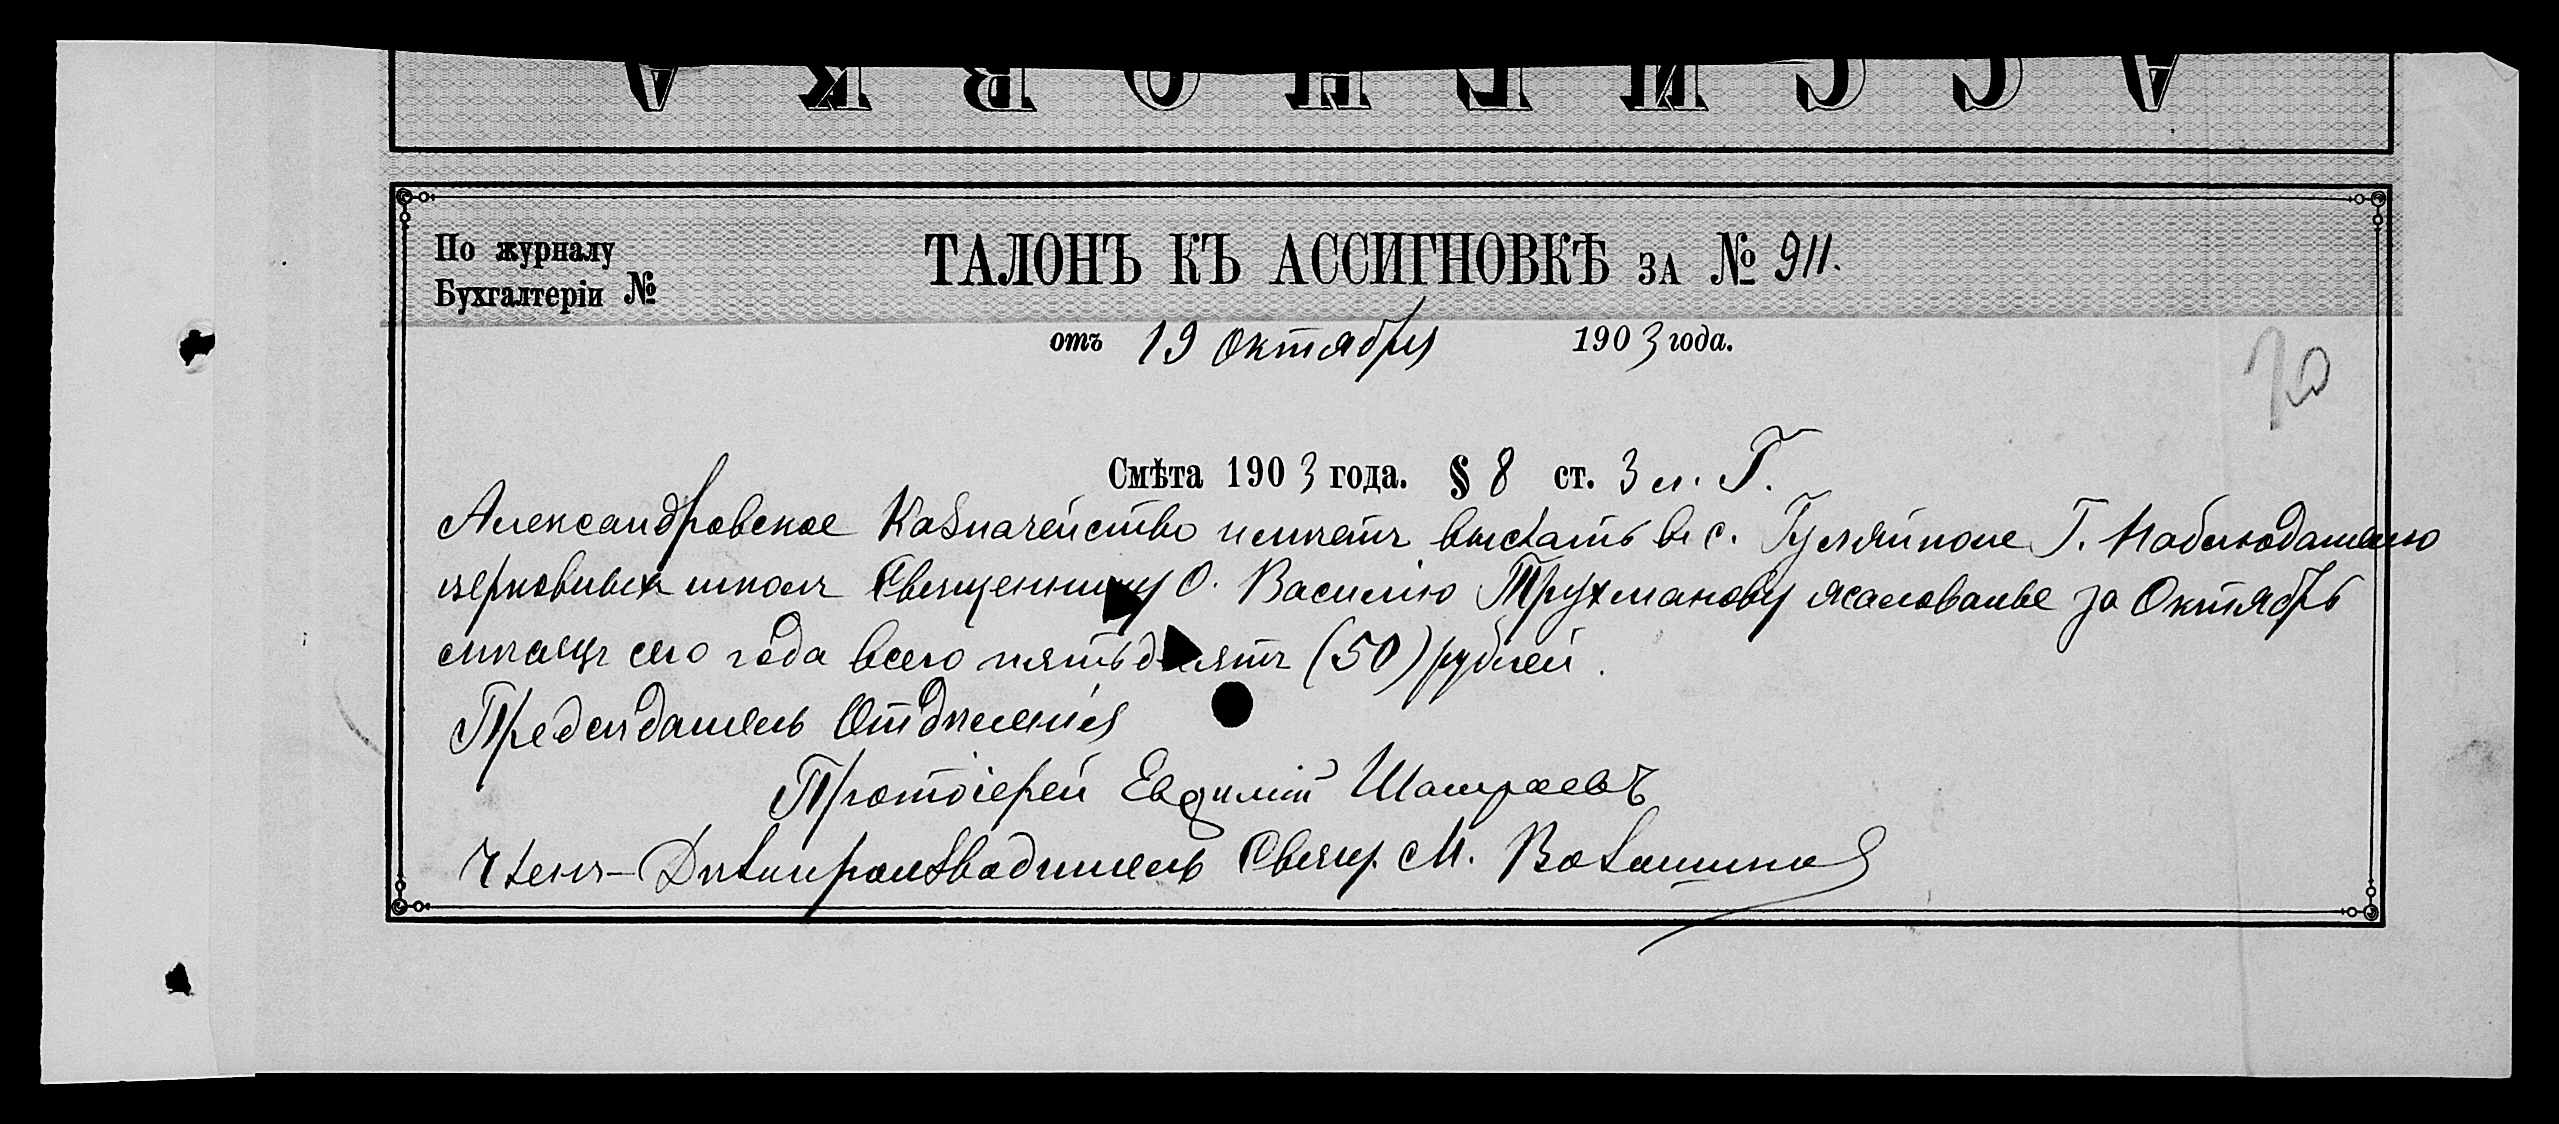 АССИГНОВКА
По журналу
Бухгалтеріи №
ТАЛОНЪ КЪ АССИГНОВКѢ ЗА № 911.
отъ 19 Октября 1903 года.
20
Смѣта 1903 года. § 8 ст. 3 л. Г.
Александровское Казначейство имѣетъ выслать въ с. Гуляйполе Г. Наблюдателю
церковныхъ школъ Священнику О. Василію Трухманову жалованье за Октябрь
мѣсяцъ сего года всего пятьдесятъ (50) рублей.
Предсѣдатель Отдѣленія
Протоіерей Евѳимій
Членъ-Дѣлопроизводитель Свящ. М.